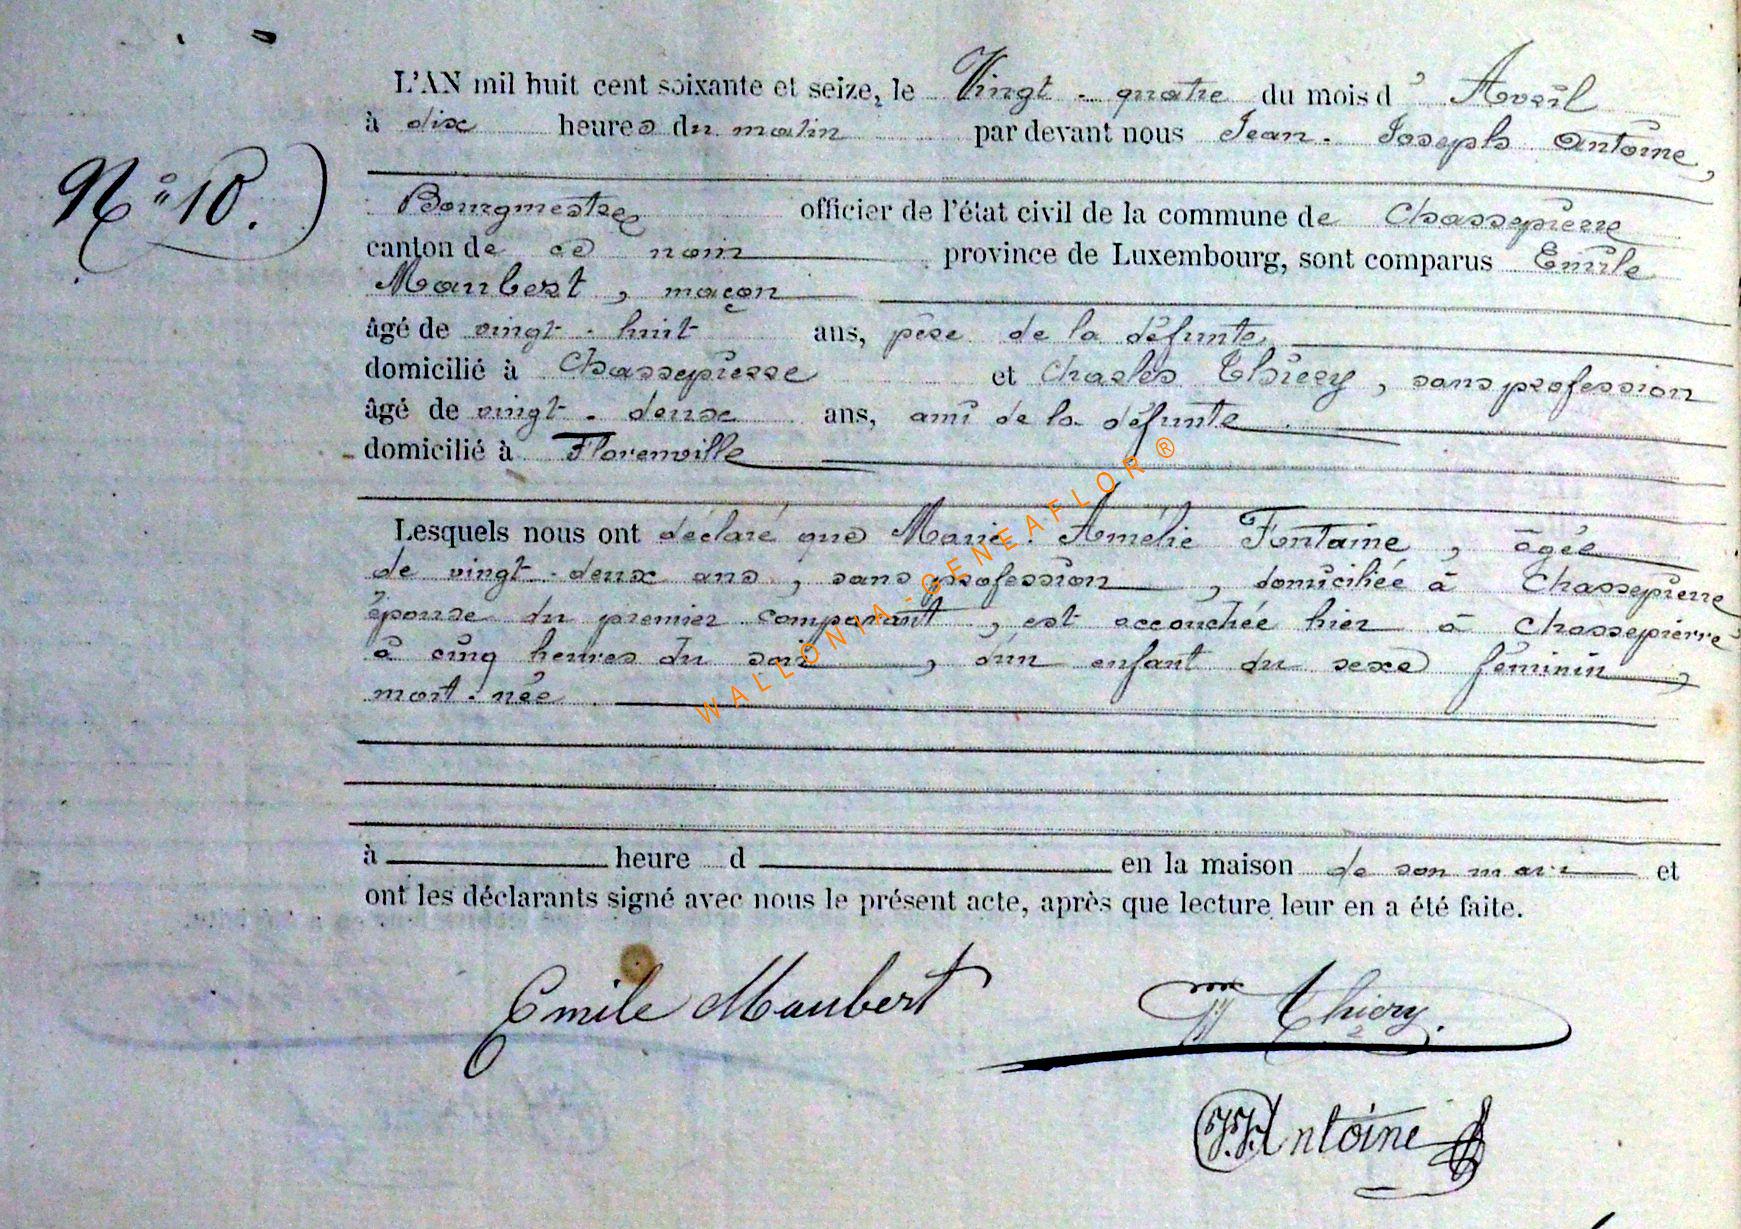 L'AN mil huit cent soixante et seize, le Vingt-quatre du mois d' Avril
à dix heures du matin par devant nous Jean-Joseph Antoine,
N° 10.)
Bourgmestre officier de l'état civil de la commune de Chassepierre
canton de ce nom province de Luxembourg, sont comparus Emile
Maubert, maçon
âgé de vingt-huit ans, père de la défunte,
domicilié à Chassepierre et Charles Thiery, sans profession
âgé de vingt-deux ans, ami de la défunte
domicilié à Florenville
Lesquels nous ont déclaré que Marie-Amélie Fontaine, âgée
de vingt-deux ans, sans profession, domiciliée à Chassepierre
épouse du premier comparant, est accouchée hier à Chassepierre
à cinq heures du soir, d'un enfant du sexe féminin,
mort-née
WALLONIA-GENEAFLOR®
à heure d en la maison de son mari et
ont les déclarants signé avec nous le présent acte, après que lecture leur en a été faite.
Emile Maubert Thiery.
J.J. Antoine